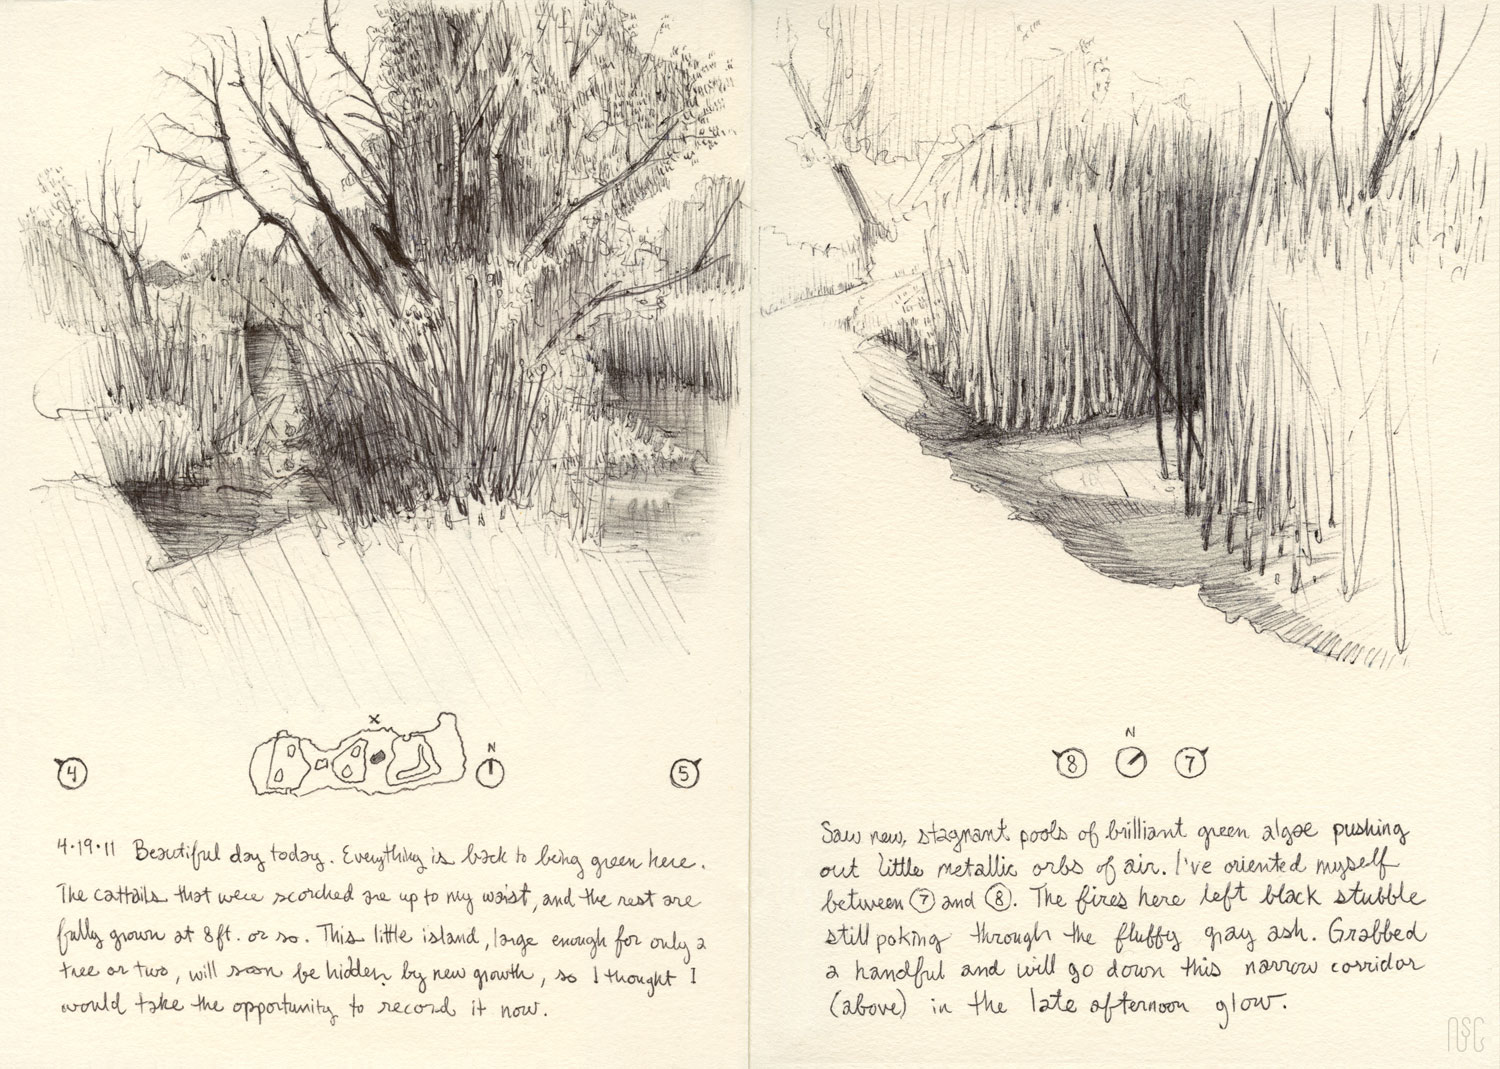 X
N
4
5
4•19•11 Beautiful day today. Everything is back to being green here.
The cattails that were scorched are up to my waist, and the rest are
fully grown at 8ft. or so. This little island, large enough for only a
tree or two, will soon be hidden by new growth, so I thought I
would take the opportunity to record it now.
N
8
7
Saw new, stagnant pools of brilliant green algae pushing
out little metallic orbs of air. I've oriented myself
between 7 and 8. The fires here left black stubble
still poking through the fluffy gray ash. Grabbed
a handful and will go down this narrow corridor
(above) in the late afternoon glow.